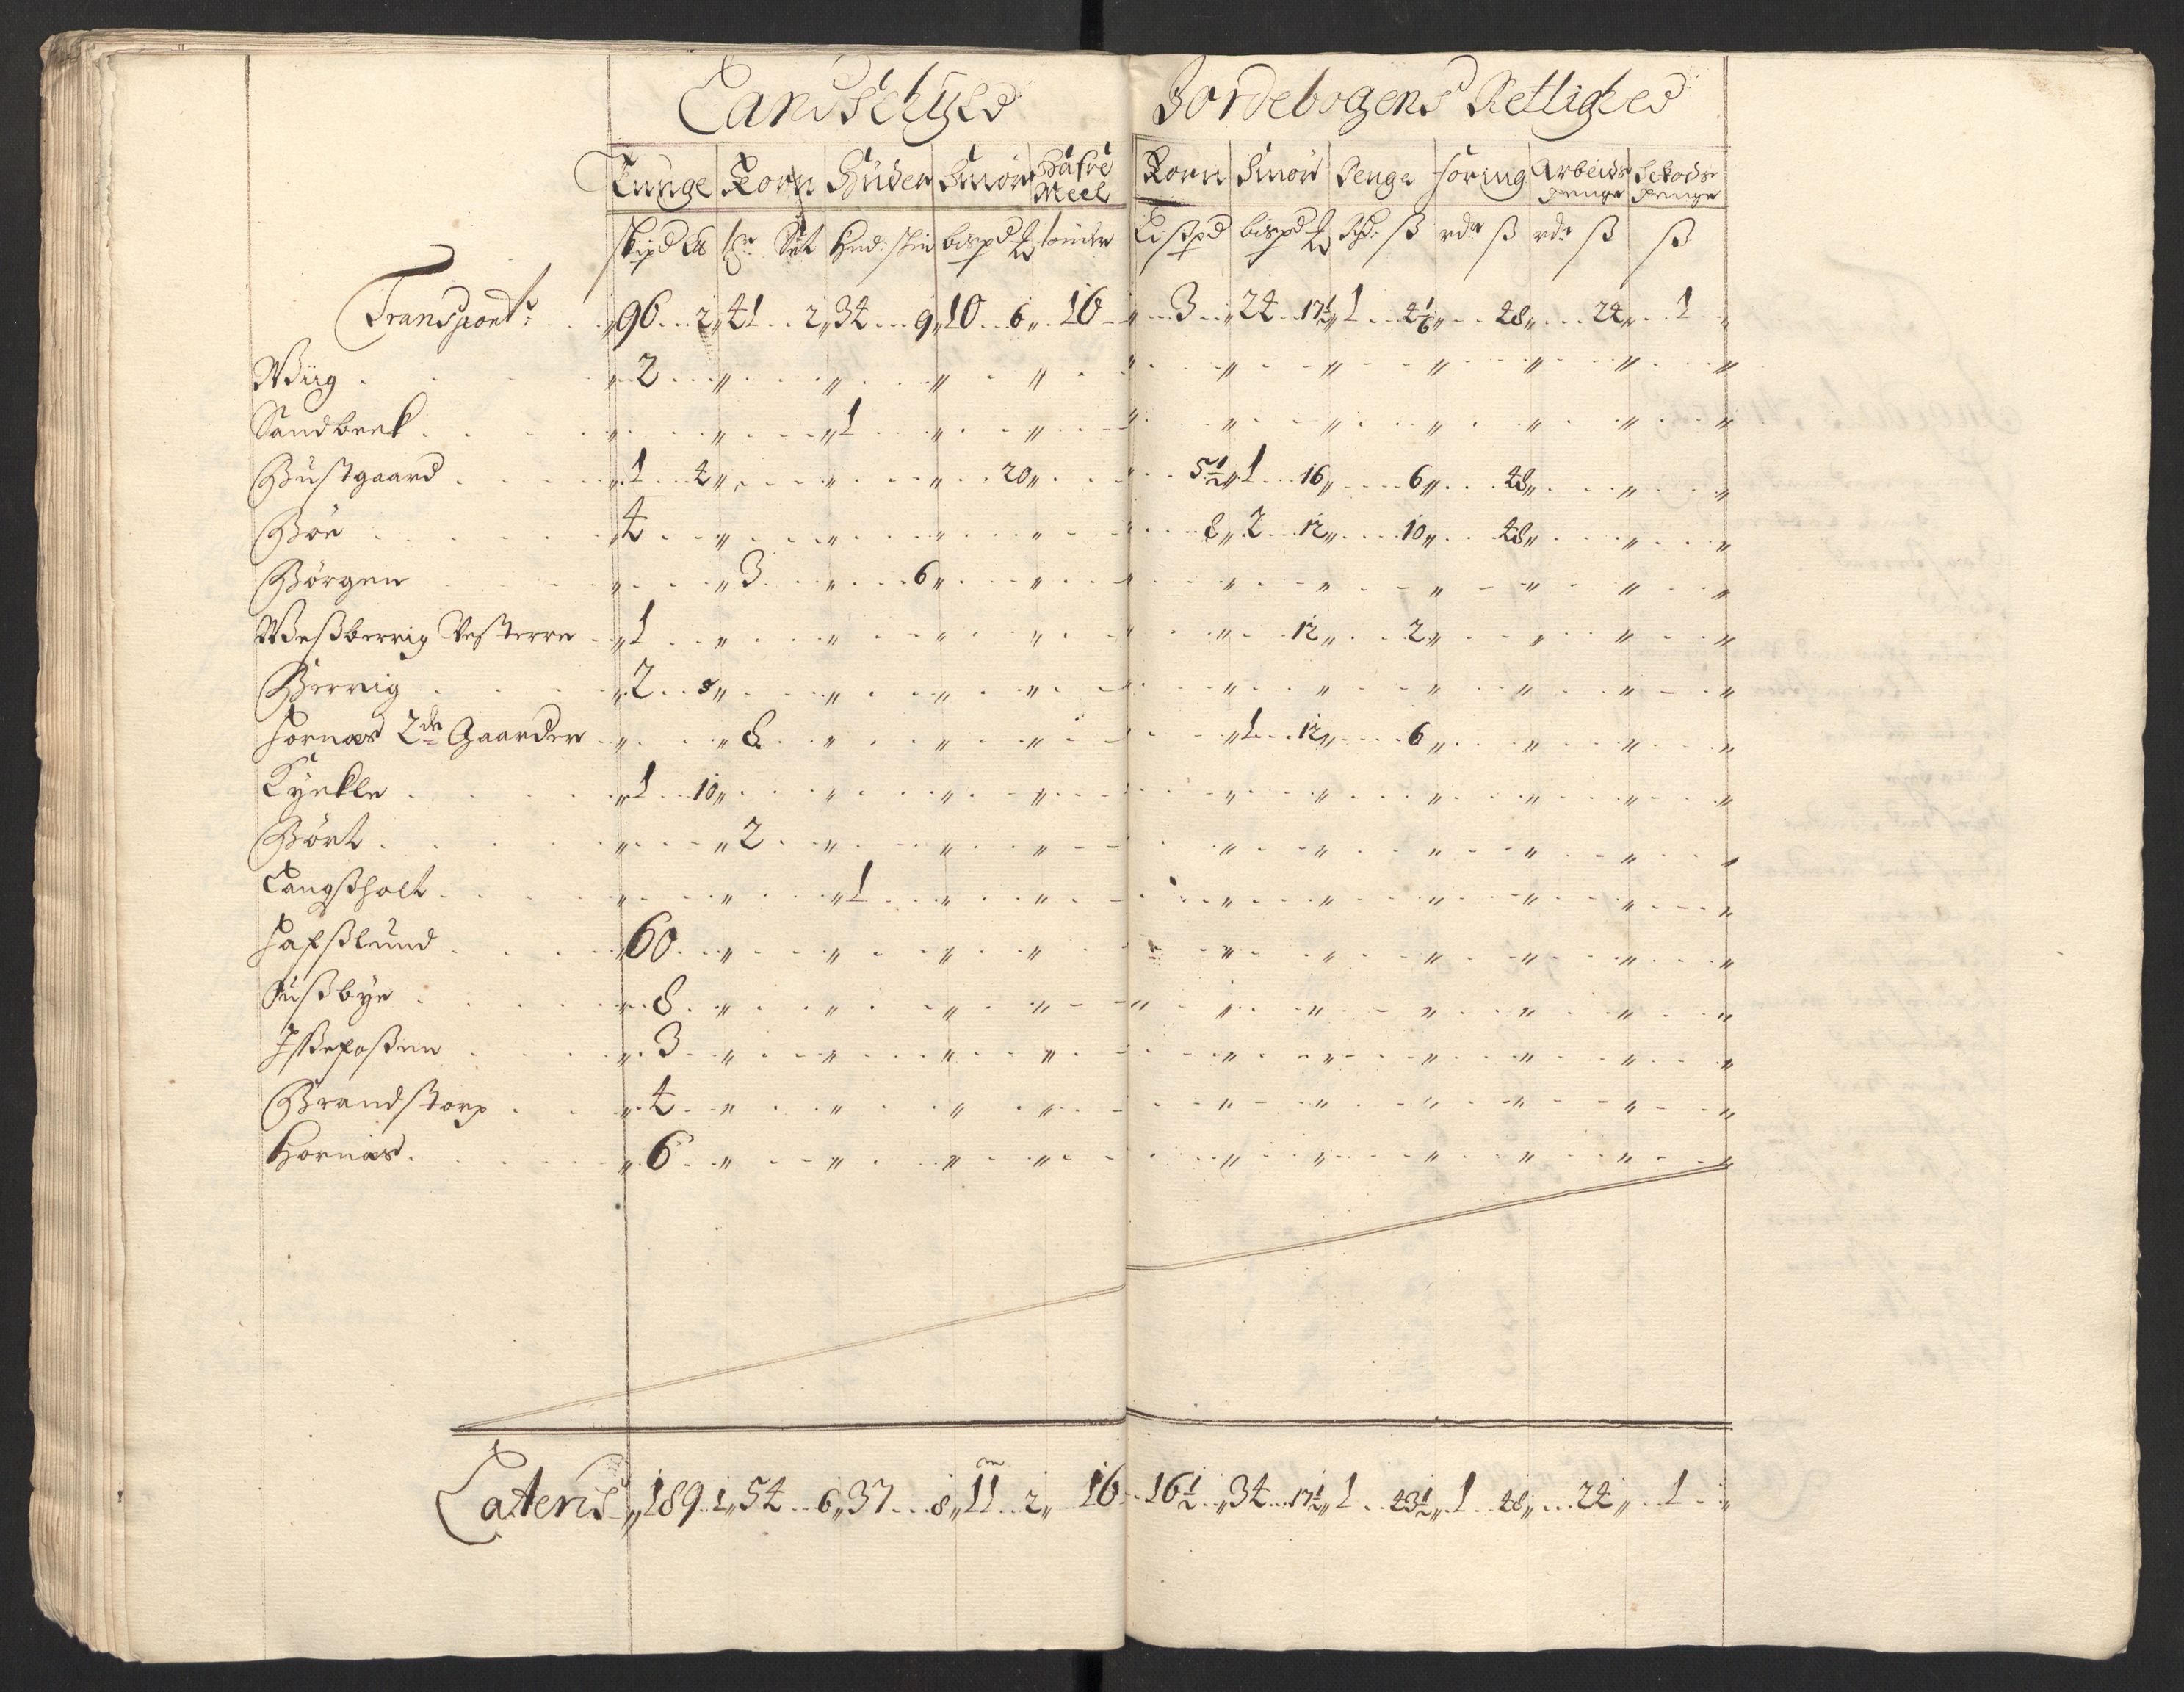 Landschyld Jordebogens Rettighed
Tunge Korn Huder Smør Hafre Meel Korn Smør Penge foring Arbeids penge Schods penge
skipd tr Set Hud: skin bispd tønder Lispd bispd ß rdr ß rdr ß ß
Transport: 96 2 41 2 34 9 10 6 16 3 24 17½ 1 28 24 1
Wiig 2
Sandbeck 1
Bustgaard 1 4 20 5½ 1 16 6 48
Böe 4 8 2 12 10 48
Börgen 3 6
Weßberrig Vesterre 1 12 2
Berrig 2 5
Hornæs 2de Gaarder 8 1 12 6
Kyekle 1 10
Bört 2
Langsholt 1
Hafslund 60
Hußbye 8
Ißefoßen 3
Brandstorp 4
Hornæs 6
Lateris 189 1 54 6 37 8 11 2 16 16½ 34 17½ 1 43½ 1 48 24 1